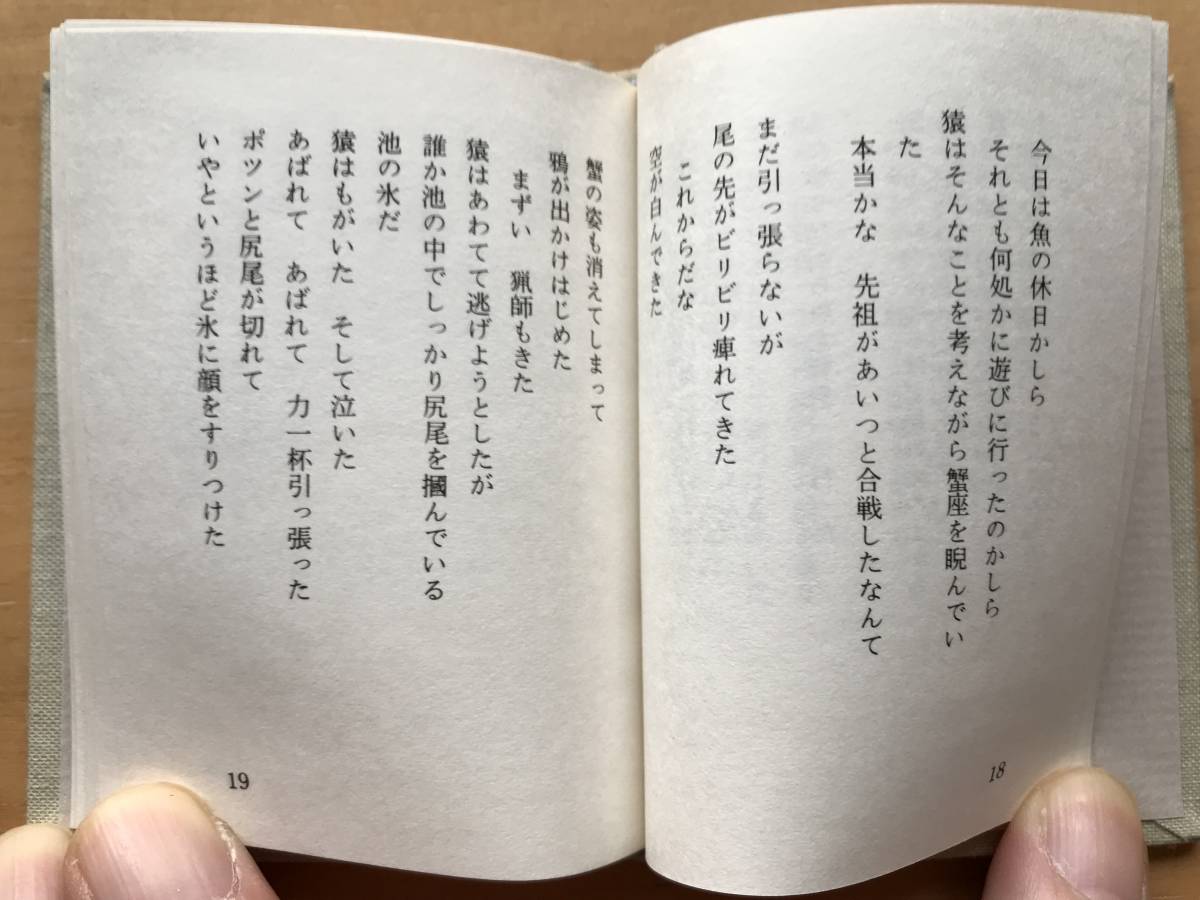 今日は魚の休日かしら
それとも何処かに遊びに行ったのかしら
猿はそんなことを考えながら蟹座を睨んでい
た
本当かな　先祖があいつと合戦したなんて
まだ引っ張らないが
尾の先がビリビリ痺れてきた
これからだな
空が白んできた
18
蟹の姿も消えてしまって
鴉が出かけはじめた
まずい　猟師もきた
猿はあわてて逃げようとしたが
誰か池の中でしっかり尻尾を摑んでいる
池の氷だ
猿はもがいた　そして泣いた
あばれて　あばれて　力一杯引っ張った
ポツンと尻尾が切れて
いやというほど氷に顔をすりつけた
19